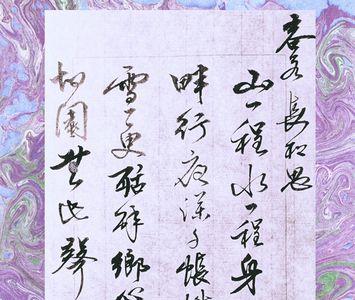 容若長相思
山一程水一程身
畔行夜深千帳燈
雪一更聒碎鄉心
故園無此聲